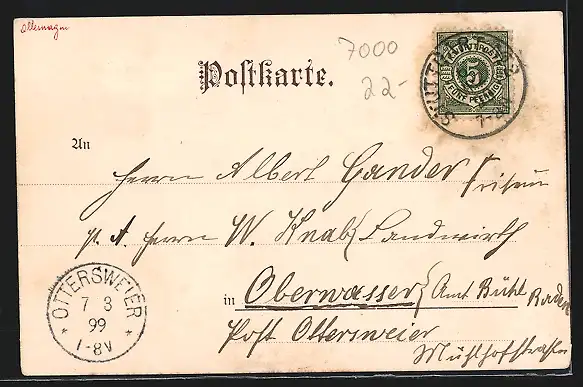 Allemagne
7000
22-
K. WÜRTT. POST
5
FÜNF PFENNIG
STUTTGART
7-8
Postkarte.
An
Herrn Albert Gander Friseur
p. A. Herrn W. Knab (Landwirth
in Oberwasser (Amt Bühl Baden
Post Ottersweier
Mühlhofstraße
OTTERSWEIER
7 3
99
7-8V